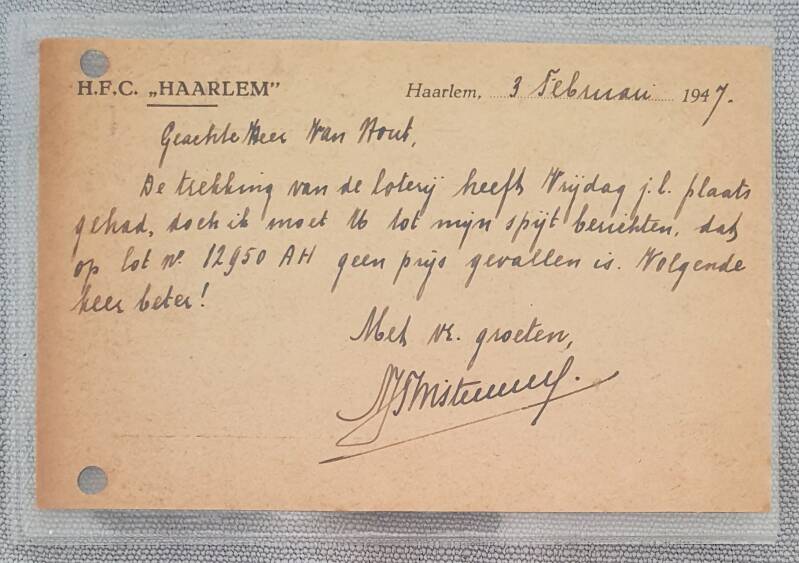 H.F.C. „HAARLEM”
Haarlem, 3 Februari 1947.
Geachte Heer Van Hout,
De trekking van de loterij heeft Vrijdag j.l. plaats
gehad, doch ik moet U tot mijn spijt berichten, dat
op lot nº 12950 AH geen prijs gevallen is. Volgende
keer beter!
Met vr. groeten,